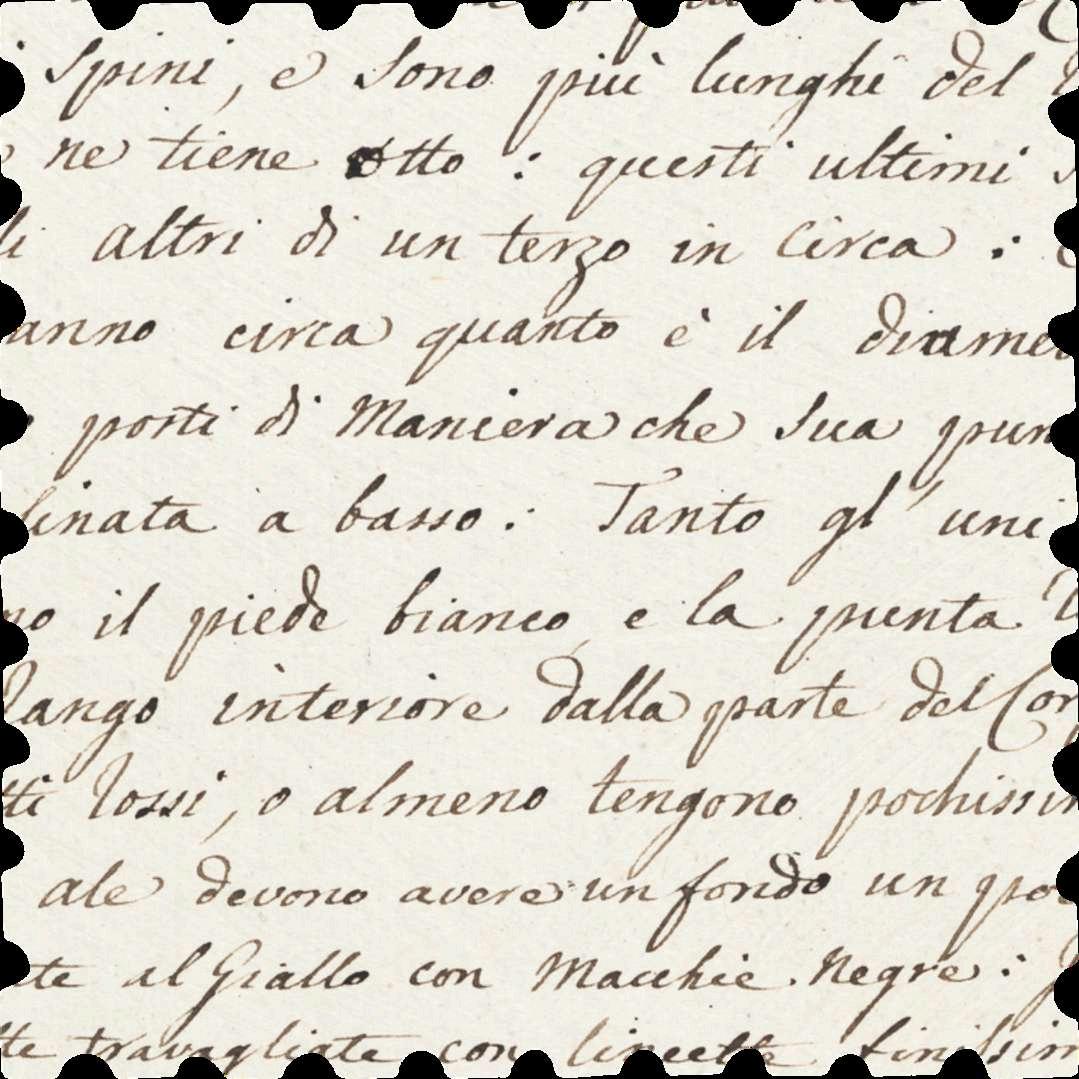 Spini, e Sono più lunghi del
ne tiene otto : questi ultimi
li altri di un terzo in Circa :
anno circa quanto è il diamet
posti di Maniera che Sua pun
linata a basso : Tanto gl' uni
no il piede bianco, e la punta
lango interiore dalla parte del Cor
tti rossi, o almeno tengono pochissim
ale devono avere un fondo un poc
te al Giallo con Macchie Negre :
tte travagliate con lineette finissim